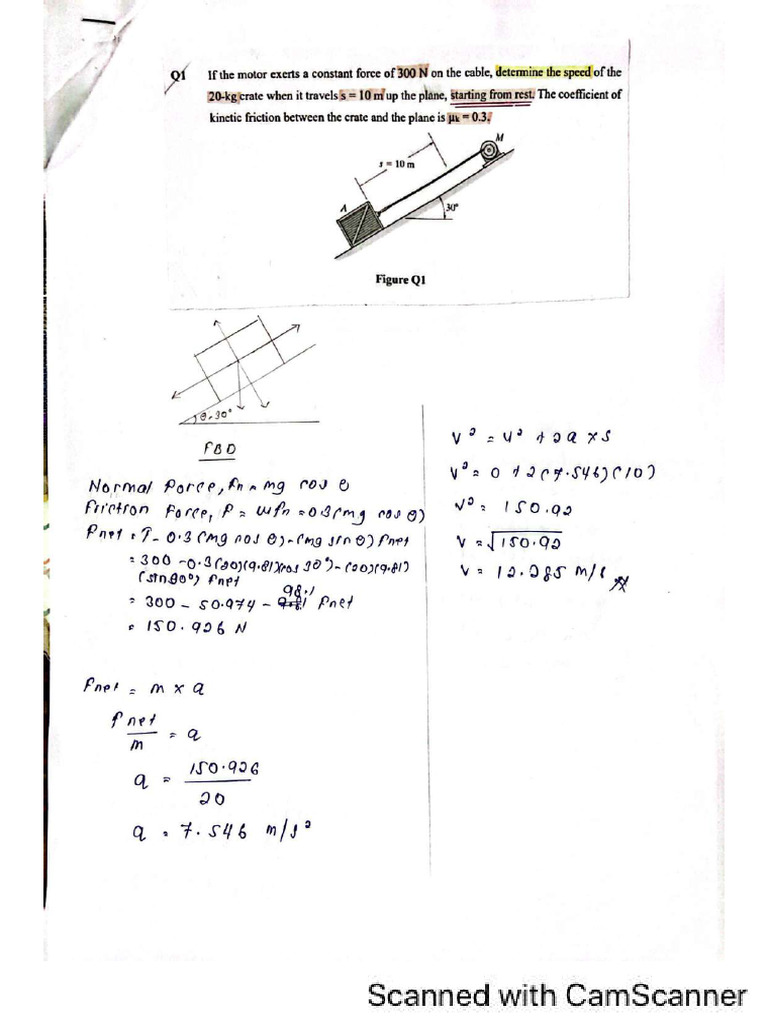 Q1 If the motor exerts a constant force of 300 N on the cable, determine the speed of the
20-kg crate when it travels s = 10 m up the plane, starting from rest. The coefficient of
kinetic friction between the crate and the plane is μk = 0.3.
M
s = 10 m
A
30°
Figure Q1
θ = 30°
FBD
Normal Force, Fn = mg cos θ
Friction Force, F = uFn = 0.3 (mg cos θ)
Fnet = T - 0.3 (mg cos θ) - (mg sin θ) Fnet
= 300 - 0.3(20)(9.81)(cos 30°) - (20)(9.81)
(sin 30°) Fnet
98.1
= 300 - 50.974 - Fnet
= 150.926 N
Fnet = m x a
Fnet
m
= a
a = 150.926
20
a = 7.546 m/s²
V² = U² + 2a x s
V² = 0 + 2(7.546)(10)
V² = 150.92
V = √150.92
V = 12.285 m/s
Scanned with CamScanner